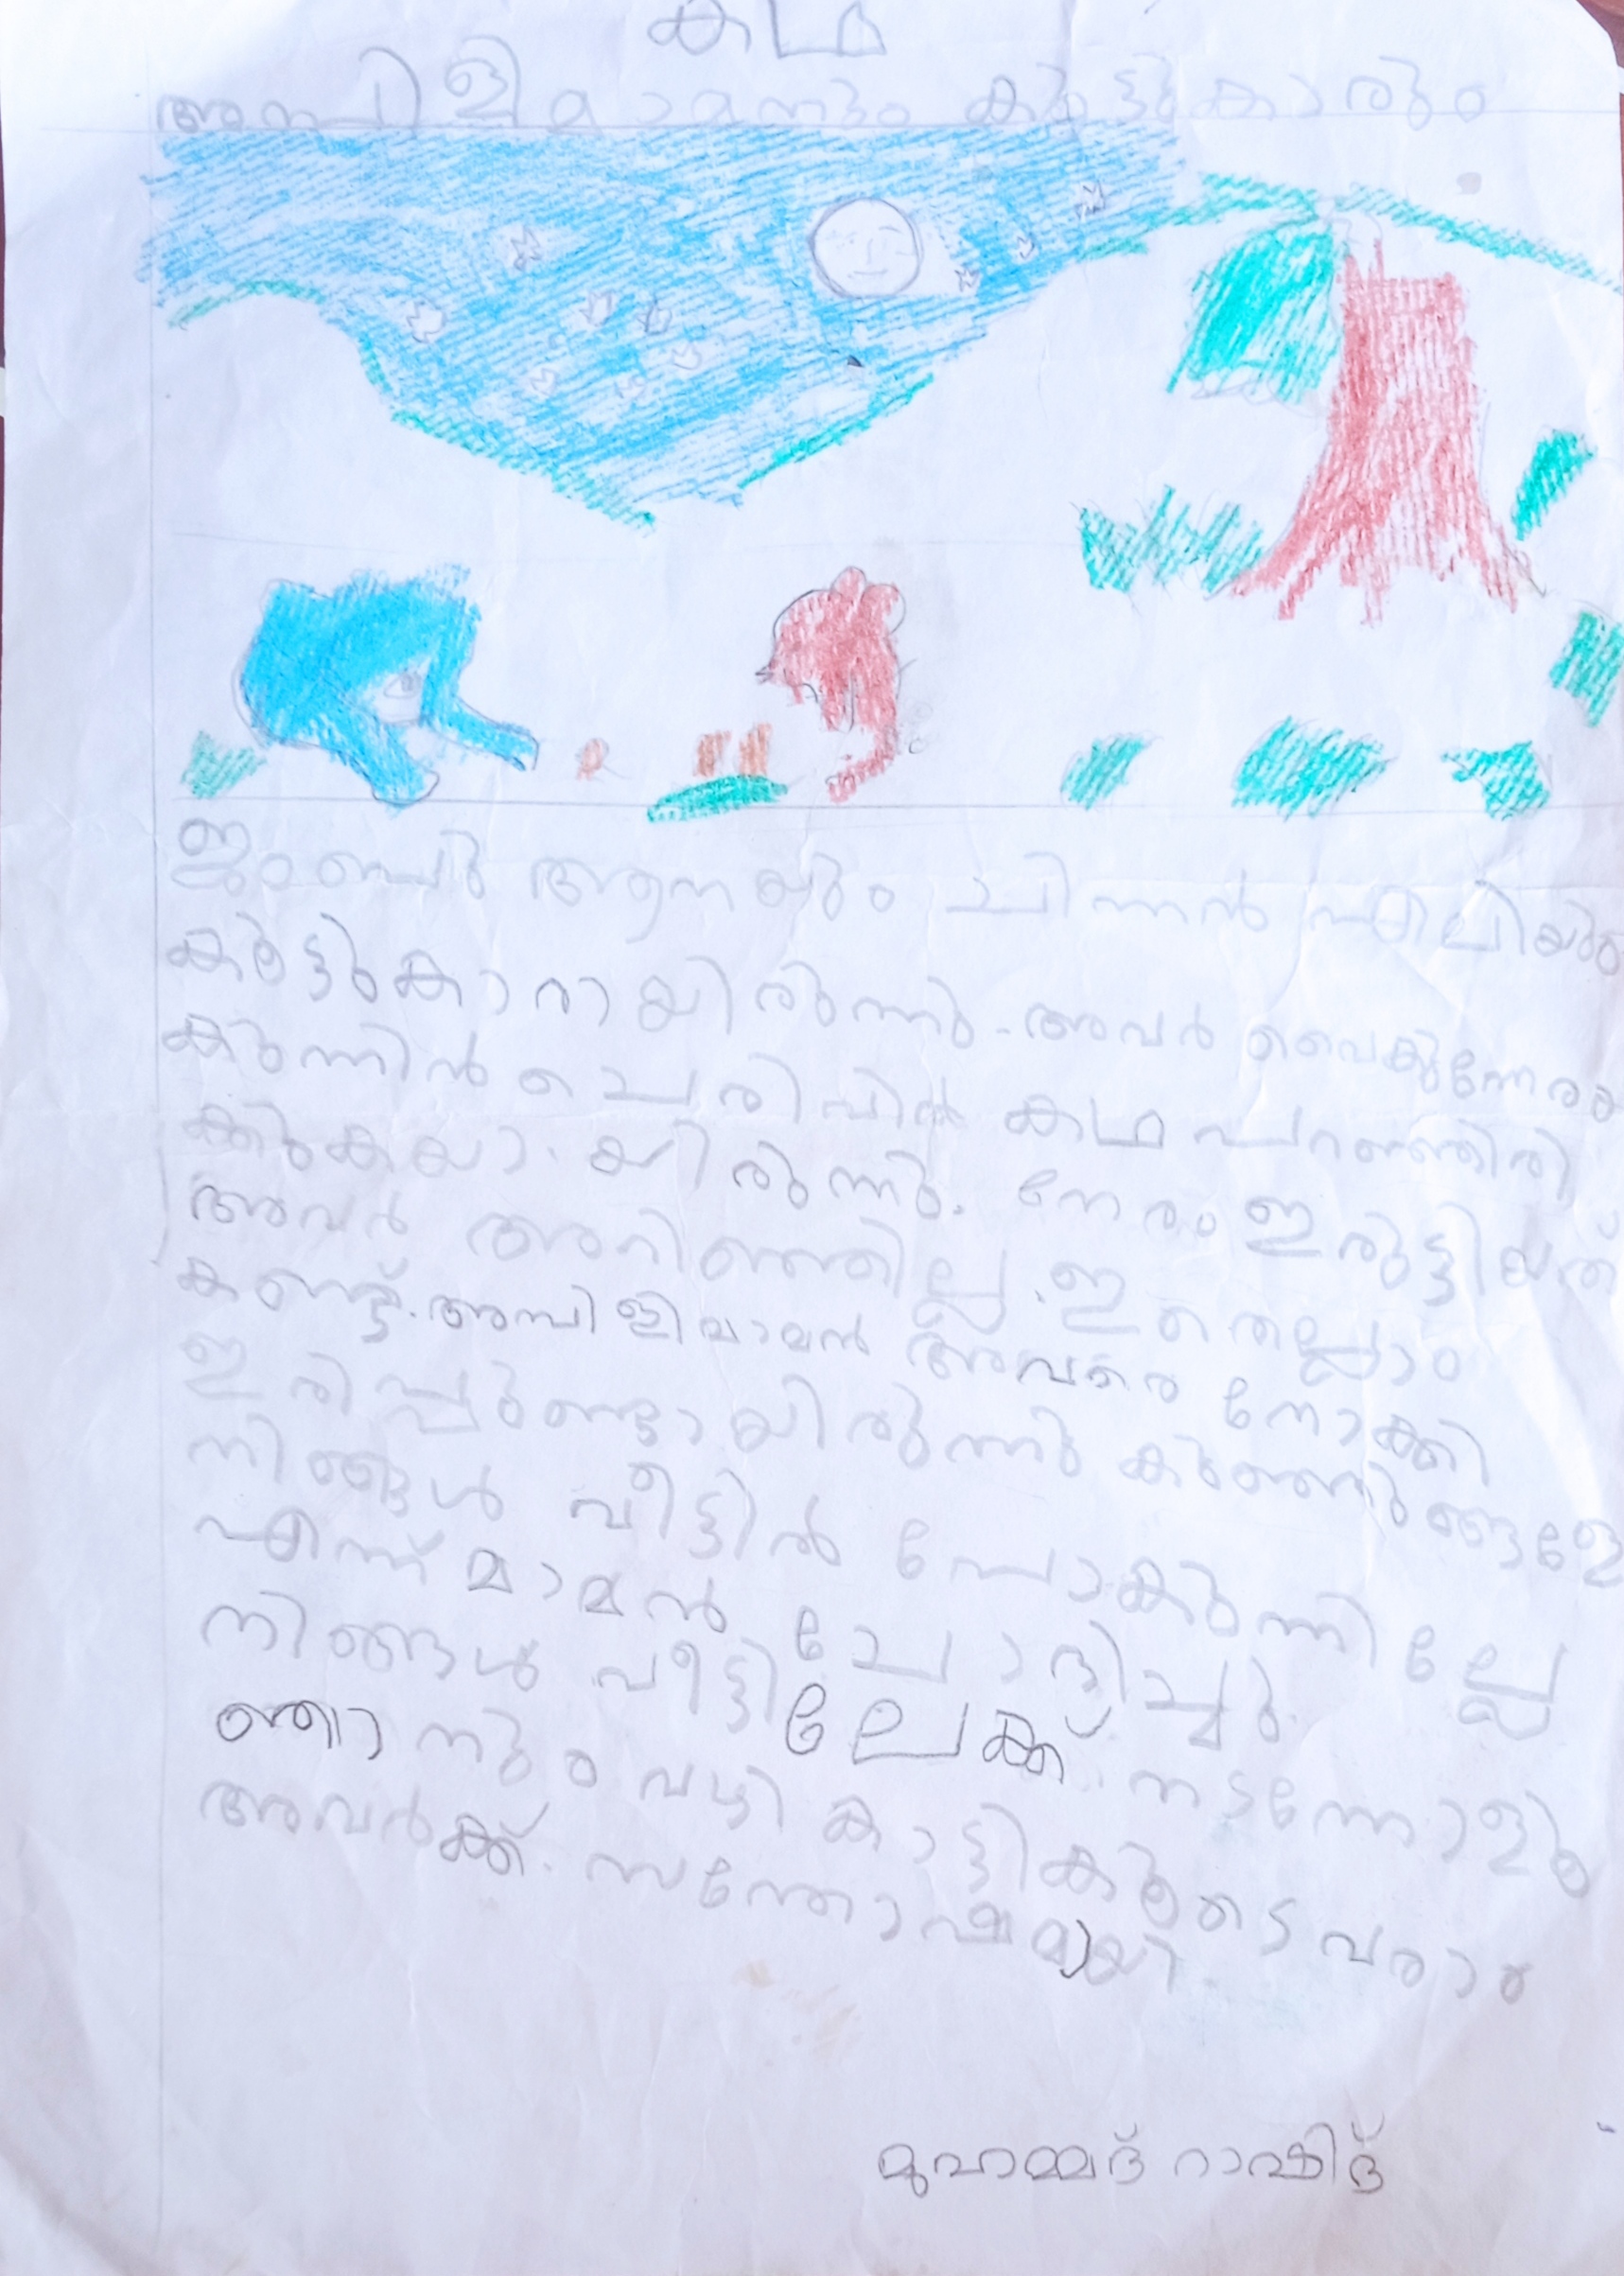 കഥ
അമ്പിളിമാമനും കൂട്ടുകാരും
ജംബു ആനയും ചിന്നൻ എലിയും
കൂട്ടുകാരായിരുന്നു. അവർ വൈകുന്നേരം
കുന്നിൻ ചെരിവിൽ കഥ പറഞ്ഞിരി
ക്കുകയാ. യിരുന്നു. നേരം ഇരുട്ടിയത്
അവർ അറിഞ്ഞില്ല. ഇതെല്ലാം
കണ്ട്. അമ്പിളിമാമൻ അവരെ നോക്കി
ഇരിപ്പുണ്ടായിരുന്നു കുഞ്ഞുങ്ങളേ
നിങ്ങൾ വീട്ടിൽ പോകുന്നില്ലേ
എന്ന് മാമൻ ചോദിച്ചു.
നിങ്ങൾ വീട്ടിലേക്ക്. നടന്നോളൂ
ഞാനും വഴി കാട്ടികൂടെ വരാം
അവർക്ക്. സന്തോഷമായി
മുഹമ്മദ് റാഷിദ്